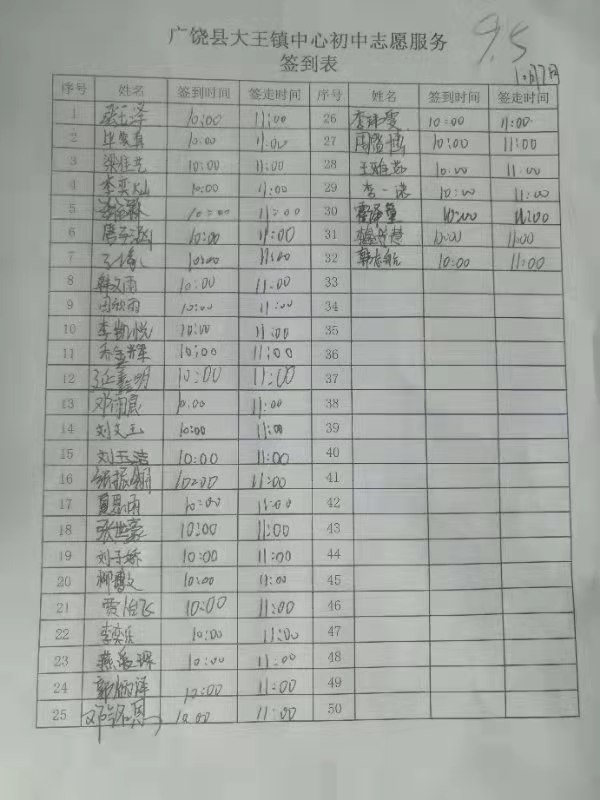 广饶县大王镇中心初中志愿服务
签到表
9.5
10月7日
序号 姓名 签到时间 签走时间 序号 姓名 签到时间 签走时间
1 10:00 11:00 26 10:00 11:00
2 10:00 11:00 27 10:00 11:00
3 梁佳艺 10:00 11:00 28 10:00 11:00
4 李奕灿 10:00 11:00 29 李一诺 10:00 11:00
5 10:00 11:00 30 10:00 11:00
6 10:00 11:00 31 10:00 11:00
7 10:00 11:00 32 韩志航 10:00 11:00
8 韩文雨 10:00 11:00 33
9 周欣雨 10:00 11:00 34
10 李凯悦 10:00 11:00 35
11 10:00 11:00 36
12 延鑫明 10:00 11:00 37
13 10:00 11:00 38
14 刘文玉 10:00 11:00 39
15 刘玉洁 10:00 11:00 40
16 张振翔 10:00 11:00 41
17 夏思雨 10:00 11:00 42
18 张世豪 10:00 11:00 43
19 刘子娇 10:00 11:00 44
20 10:00 11:00 45
21 贾怡飞 10:00 11:00 46
22 李奕乐 10:00 11:00 47
23 10:00 11:00 48
24 10:00 11:00 49
25 10:00 11:00 50